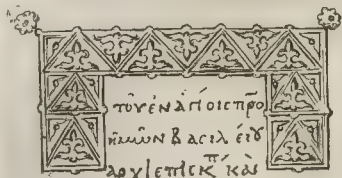 τοῦ ἐν ἁγίοις προ
ἡμῶν Βασιλείου
ἀρχιεπισκπ καὶ